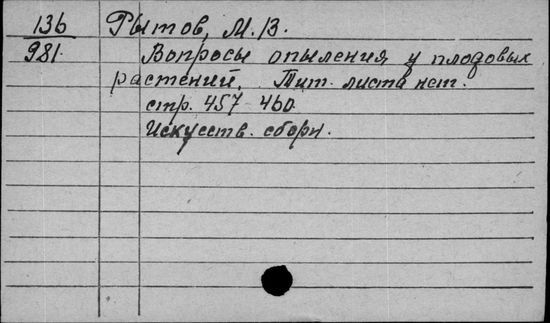 136 Рытов, М.В.
981. Вопросы опыления у плодовых
растений. Тит. листа нет.
стр. 457-460
Искусств. сборн.